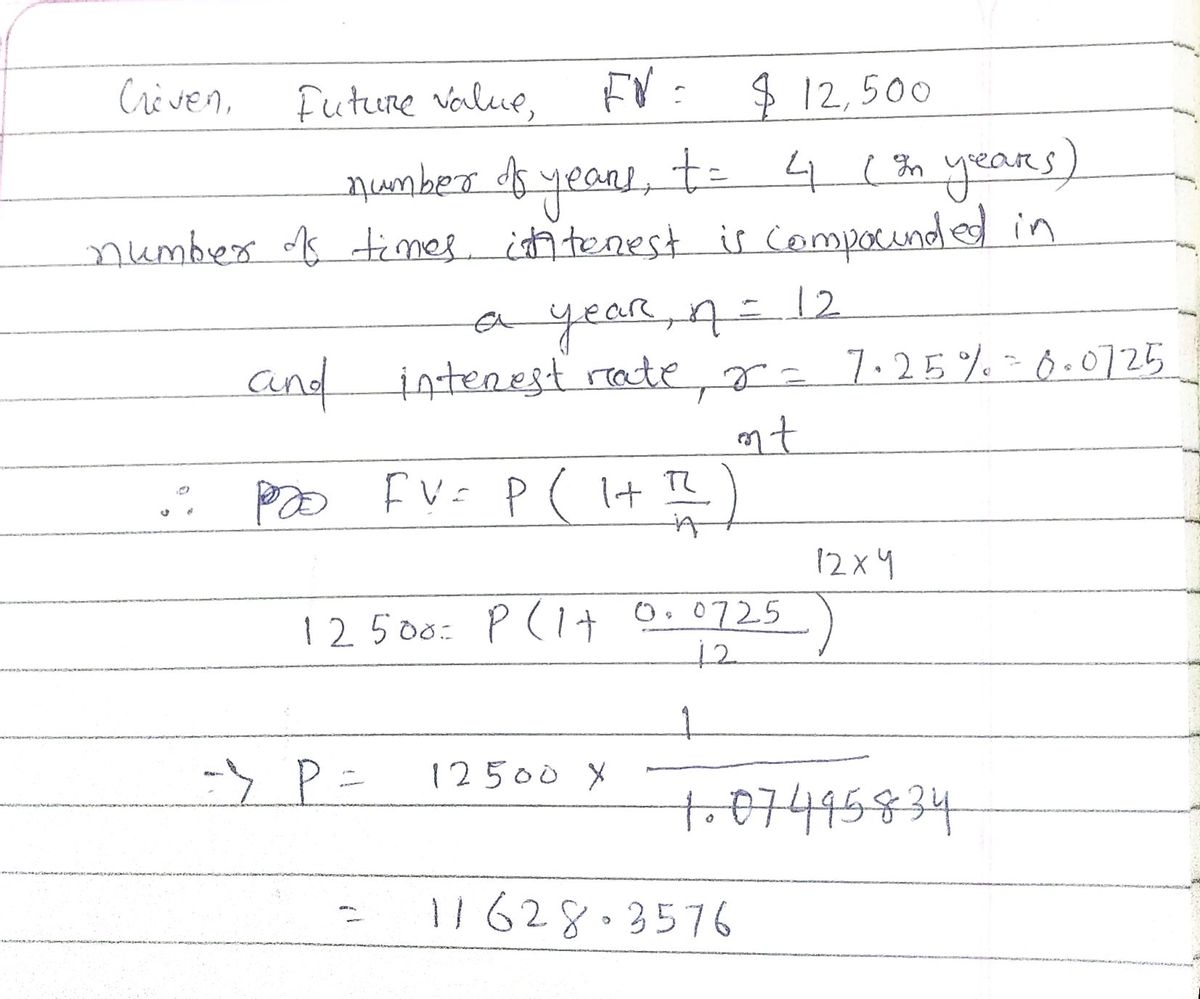 Given, Future value, FV = $ 12,500
number of years, t = 4 (in years)
number of times interest is compounded in
a year, n = 12
and interest rate, r = 7.25% = 0.0725
∴ FV = P ( 1 + r/n )^nt
12500 = P ( 1 + 0.0725/12 )^12×4
=> P = 12500 × 1/1.07495834
= 11628.3576